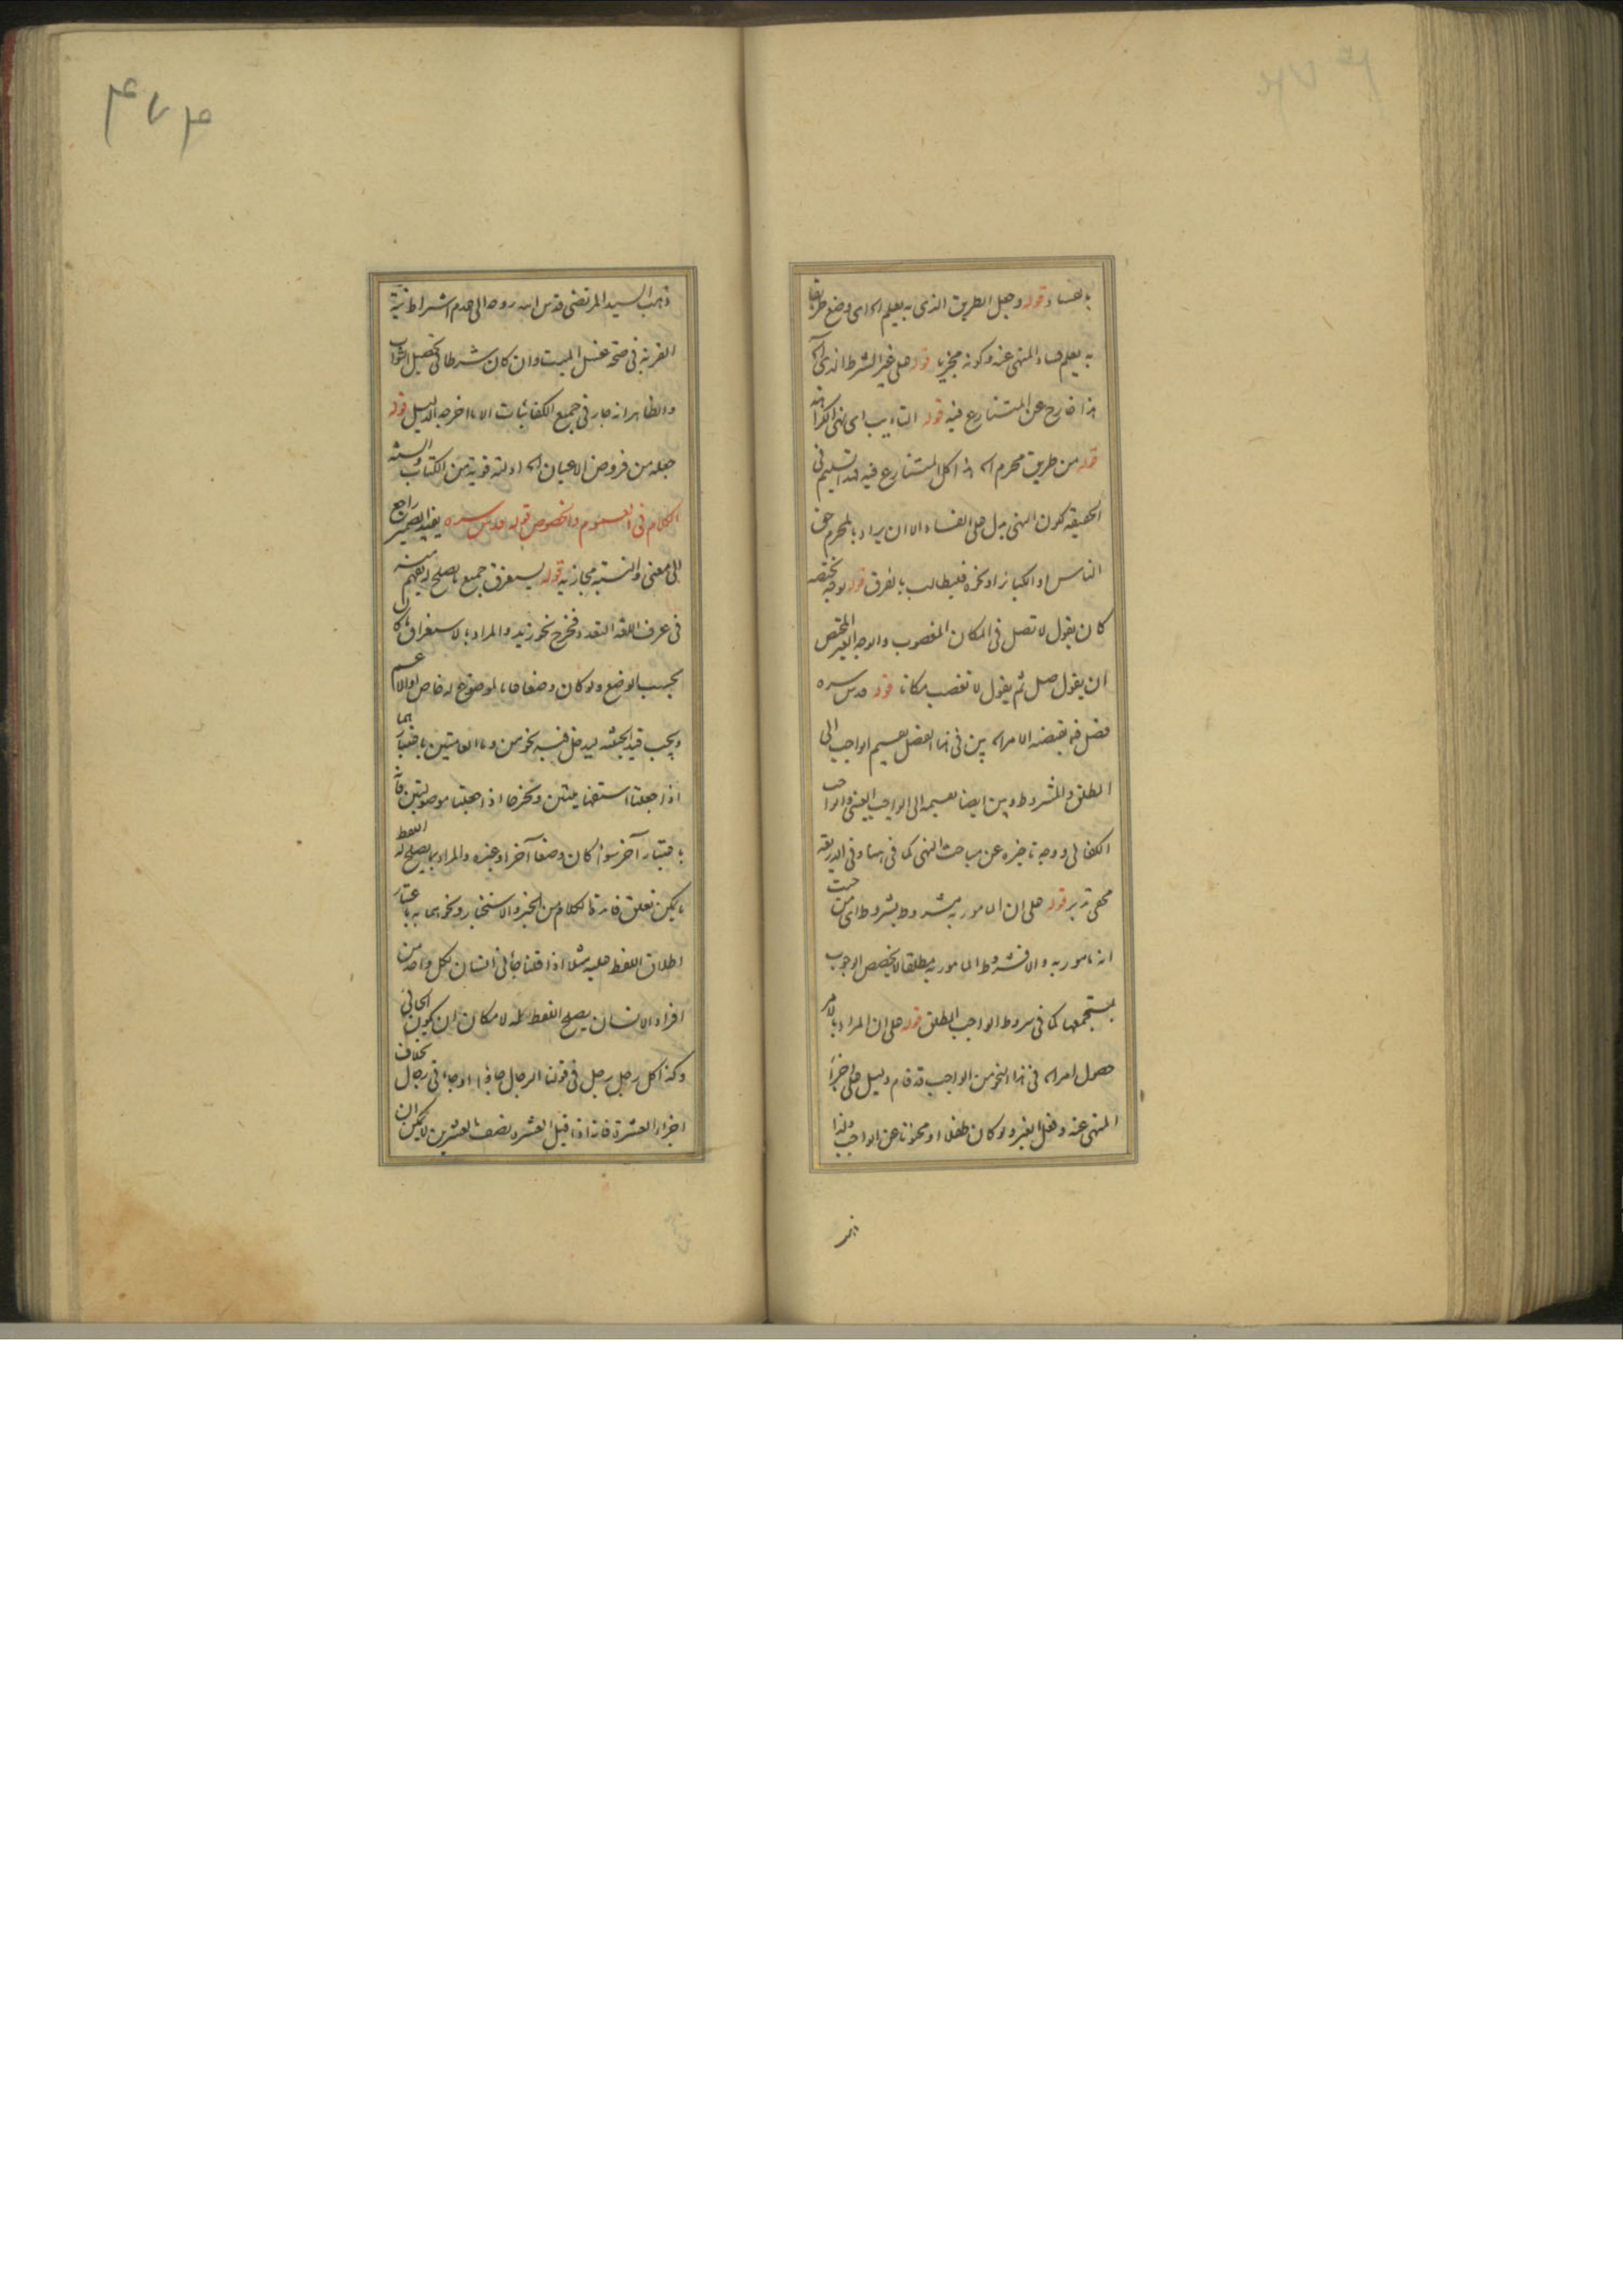 بالفساد قوله وجعل الطريق الذى به يعلم اى وضع طريقا
به يعلم فساد المنهى عنه وكونه مجزيا قوله على غير الشرط الذى
هذا خارج عن المتنازع فيه قوله التاديب اى نهى الكراهة
قوله من طريق محرم اكل المتنازع فيه فهذا تسليم فى
الحقيقة كون النهى يدل على الفساد الا ان يراد بالمحرم حق
الناس او الكبائر او نحوه فيطالب بالفرق قوله لوجه يختصه
كان يقول لا تصل فى المكان المغصوب والوجه الغير المختص
ان يقول صل ثم يقول لا تغصب مكانا قوله قدس سره
فصل فيما يقتضيه الامر بين فى هذا الفصل تقسيم الواجب الى
المطلق والمشروط وبين ايضا تقسيمه الى الواجب العينى والواجب
الكفائى ووجه تاخيره عن مباحث النهى كما فى هنا وفى الذريعة
مخفى تدبر قوله على ان المامور به مشروط بشروط اى من حيث
انه مامور به والا فشروط المامور به مطلقا لا يخصص الوجوب
بمستجمعها كما فى شروط الواجب المطلق قوله على ان المراد بالامر
حصول امر فى هذا النحو من الواجب قد قام دليل على اجزاء
المنهى عنه وفعل الغير ولو كان طفلا او مجنونا عن الواجب ولهذا
ذهب السيد المرتضى قدس الله روحه الى عدم اشتراط نية
القربة فى صحة غسل الميت وان كان شرطا فى تحصيل الثواب
والظاهر انه جار فى جميع الكفائيات الا ما اخرجه الدليل قوله
جعله من فروض الاعيان ادلته قوية من الكتاب والسنة
الكلام فى العموم والخصوص قوله قدس سره يفيد الضمير راجع
الى معنى والنسبة مجازية قوله يستغرق جميع ما يصلح له يفهم منه
فى عرف اللغة التعدد فخرج نحو زيد والمراد بالاستغراق ما كان
بحسب الوضع ولو كان وضعا عاما لموضوع له خاص او الاعم
ويجب قيد الحيثية ليدخل فيه نحو من وما العامتين باعتبارهما
اذا جعلتا استفهاميتين ونخرجا اذا جعلتا موصولتين
باعتبار آخر سواء كان وضعا آخر او غيره والمراد بما يصلح له اللفظ
ما يمكن تعلق فائدة الكلام من الخبر والاستخبار ونحوهما به باعتبار
اطلاق اللفظ عليه مثلا اذا قلنا جائنى انسان لكل واحد من
افراد الانسان يصلح اللفظ له لامكان ان يكون الجائى
وكذا كل رجل رجل فى قولنا الرجال جاؤا او جائنى رجال بخلاف
اجزاء العشرة فانه اذا قيل العشرة نصف العشرين لا يمكن ان